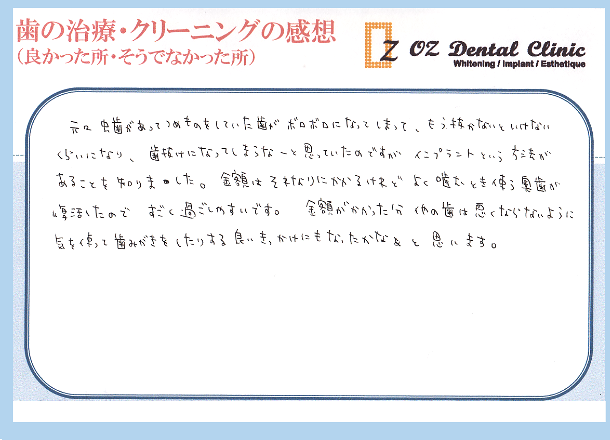 歯の治療・クリーニングの感想
(良かった所・そうでなかった所)
OZ OZ Dental Clinic
Whitening / Implant / Esthetique
元々虫歯があってつめものをしていた歯がボロボロになってしまって、もう抜かないといけない
くらいになり、歯抜けになってしまうなーと思っていたのですがインプラントという方法が
あることを知りました。金額はそれなりにかかるけれどよく噛むとき使う奥歯が
復活したのですごく過ごしやすいです。金額がかかった分他の歯は悪くならないように
気を使って歯みがきをしたりする良いきっかけにもなったかなぁと思います。